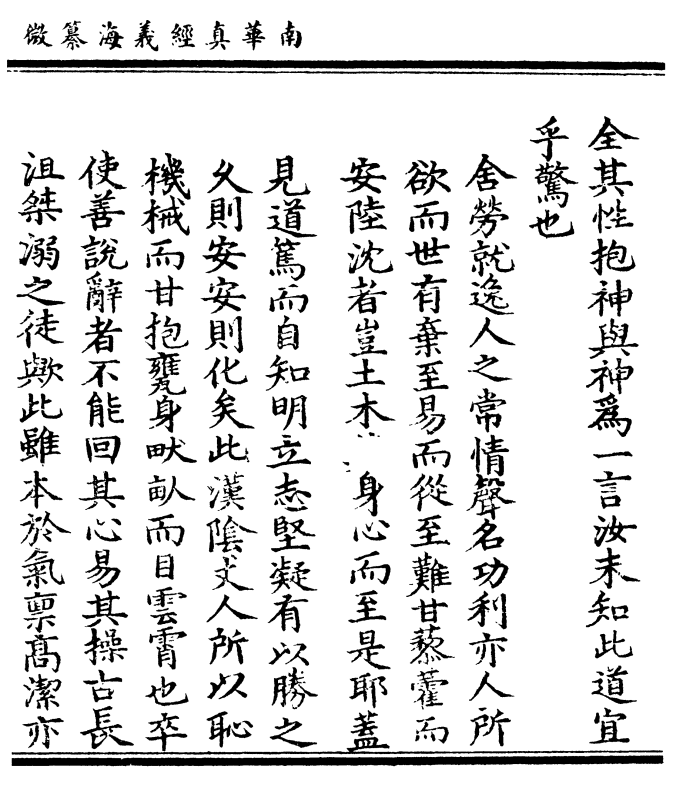 南華真經義海纂微
全其性抱神與神為一言汝未知此道宜
乎驚也
舍勞就逸人之常情聲名功利亦人所
欲而世有棄至易而從至難甘藜藿而
安陸沈者豈土木身心而至是耶蓋
見道篤而自知明立志堅凝有以勝之
久則安安則化矣此漢陰丈人所以恥
機械而甘抱甕身畎畝而目雲霄也卒
使善說辭者不能回其心易其操古長
沮桀溺之徒歟此雖本於氣稟髙潔亦